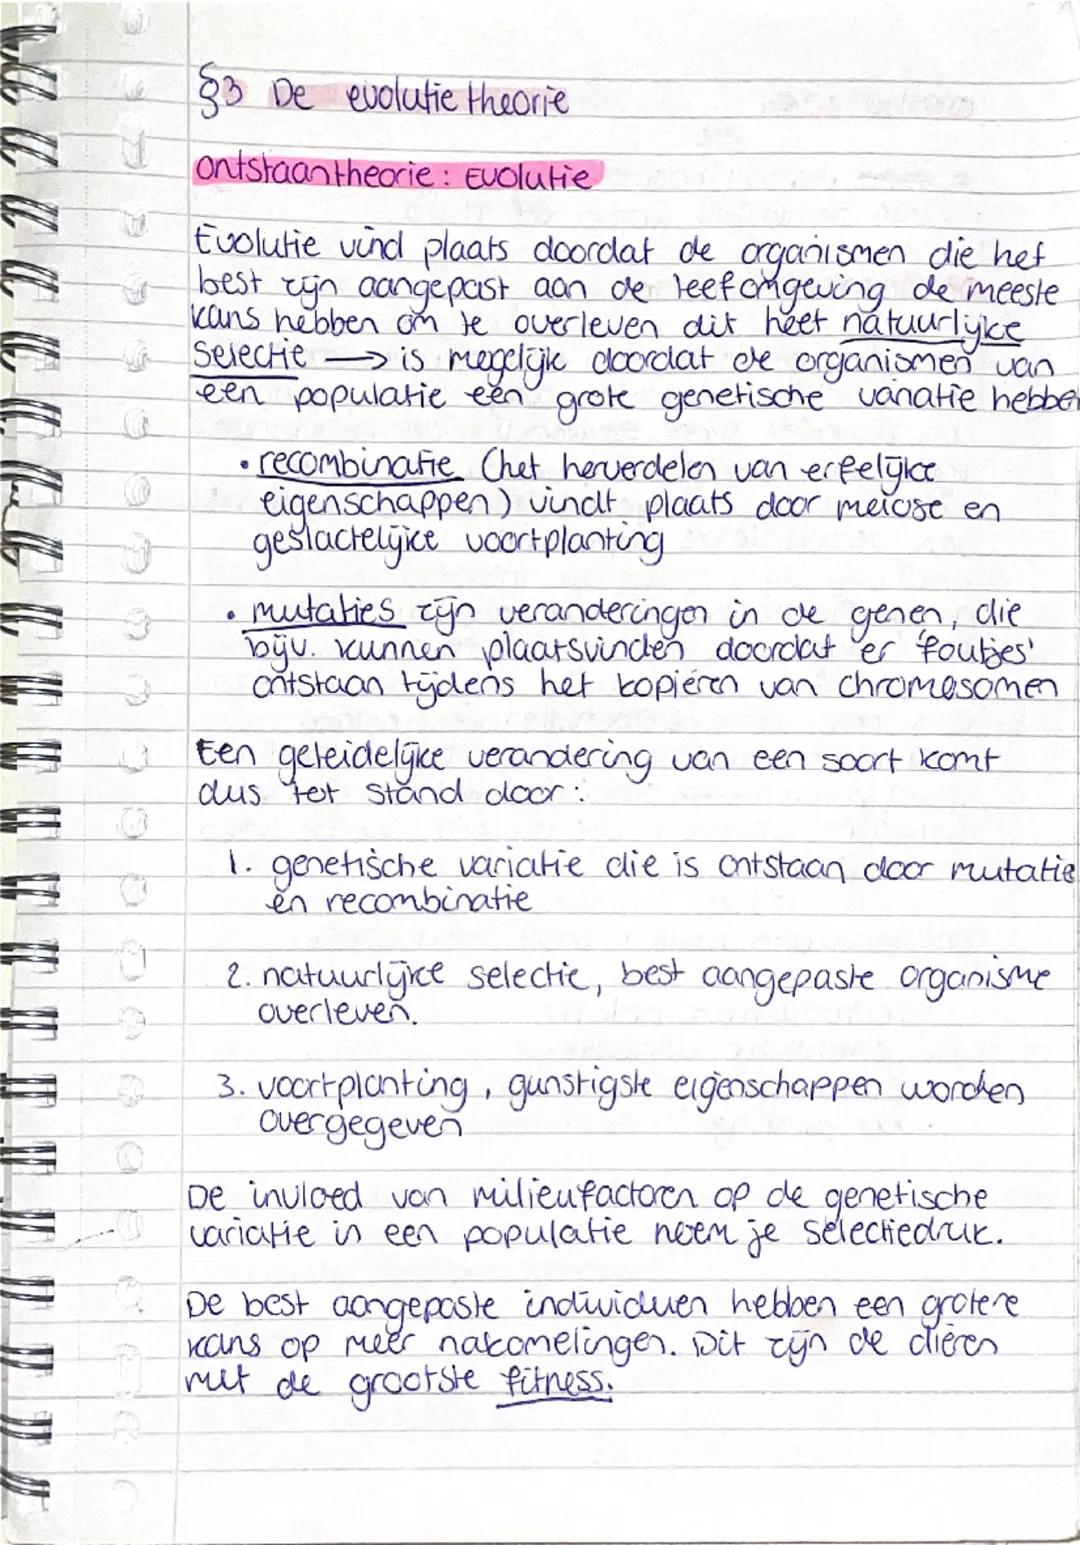 §3 De evolutie theorie
Ontstaantheorie: Evolutie
Evolutie vind plaats doordat de organismen die het
best zijn aangepast aan de leefomgeving de meeste
kans hebben om te overleven dit heet natuurlijke
Selectie → is mogelijk doordat de organismen van
een populatie een grote genetische variatie hebben
• recombinatie (het herverdelen van erfelijke
eigenschappen) vindt plaats door meiose en
geslachtelijke voortplanting
• mutaties zijn veranderingen in de genen, die
bijv. kunnen plaatsvinden doordat er 'foutjes'
ontstaan tijdens het kopiëren van chromosomen
Een geleidelijke verandering van een soort komt
dus tot stand door:
1. genetische variatie die is ontstaan door mutatie
en recombinatie
2. natuurlijke selectie, best aangepaste organisme
overleven.
3. voortplanting, gunstigste eigenschappen worden
overgegeven
De invloed van milieufactoren op de genetische
variatie in een populatie noem je selectiedruk.
De best aangepaste individuen hebben een grotere
kans op meer nakomelingen. Dit zijn de dieren
met de grootste fitness.